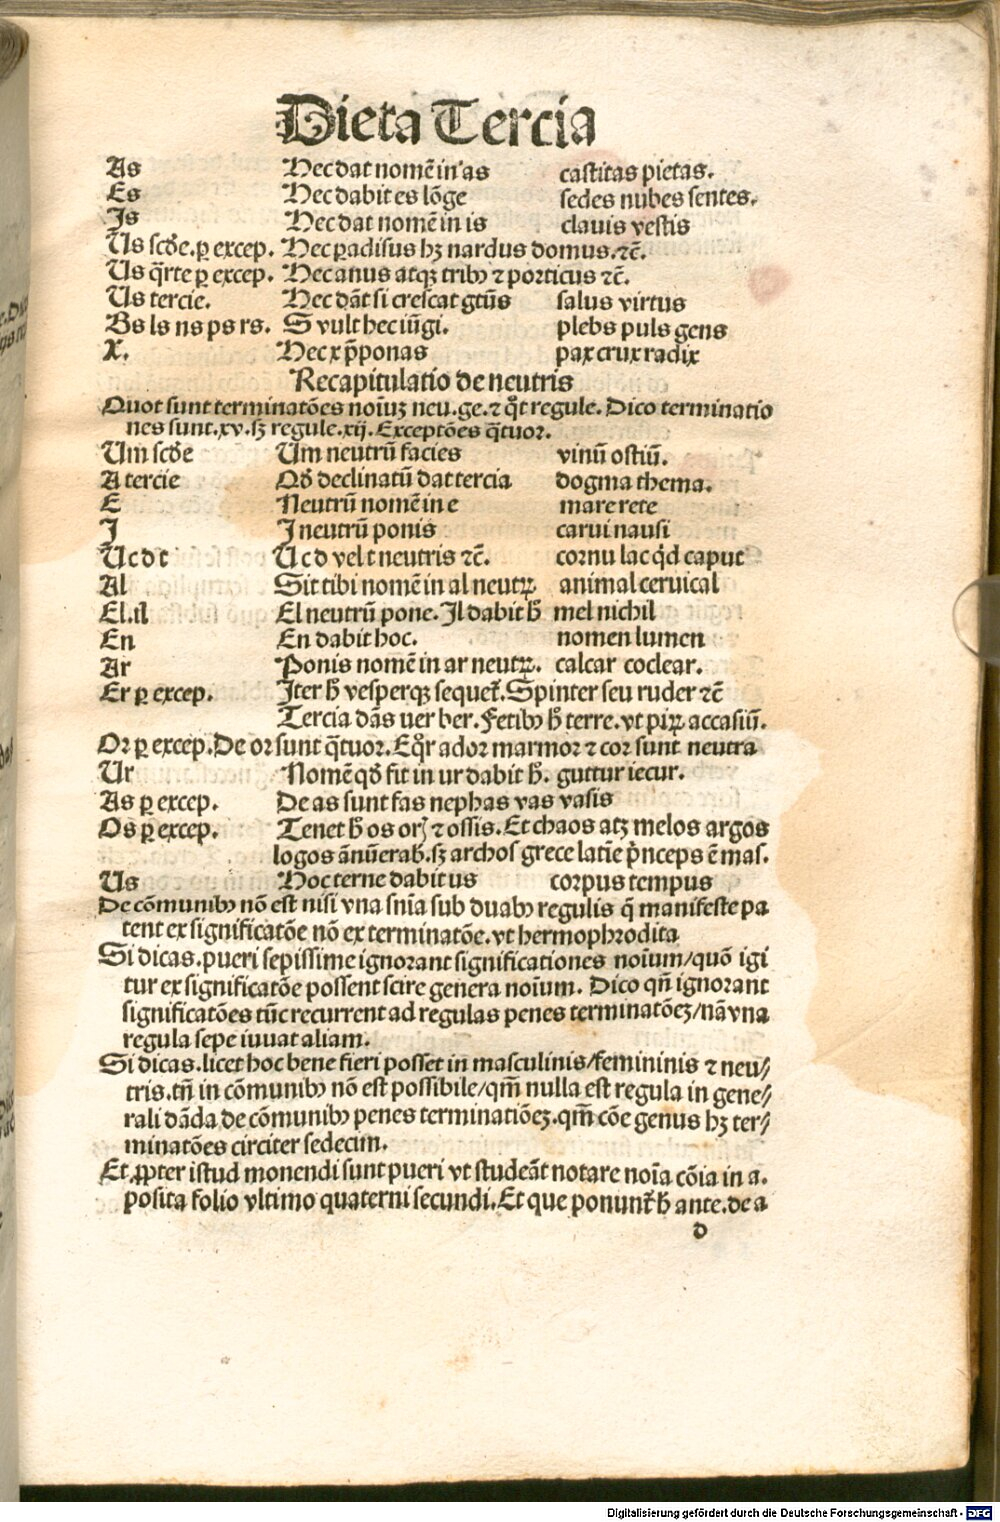 Dieta Tercia
As Hec dat nomē in as castitas pietas.
Es Hec dabit es lōge sedes nubes sentes.
Is Hec dat nomē in is clauis vestis
Us scḋe. ꝑ excep. Hec ꝑadisus hꝫ nardus domus.⁊c̄.
Us q̄rte ꝑ excep. Hec anus atqꝫ tribꝰ ⁊ porticus ⁊c̄.
Us tercie. Hec dāt si crescat gtūs salus virtus
Bs ls ns ps rs. S vult hec iūgi. plebs puls gens
X. Hec x p̄ponas pax crux radix
Recapitulatio de neutris
Quot sunt terminatōes noīuꝫ neu.ge.⁊ qͦt regule. Dico terminatio
nes sunt.xv.sꝫ regule.xij. Exceptōes q̄tuor.
Um scḋe Um neutrū facies vinū ostiū.
A tercie Qḋ declinatū dat tercia dogma thema.
E Neutrū nomē in e mare rete
I I neutrū ponis carui nausi
U c d t U c d vel t neutris ⁊c̄. cornu lac qͥd caput
Al Sit tibi nomē in al neutꝝ animal ceruical
El.il El neutrū pone. Il dabit h̄ mel nichil
En En dabit hoc. nomen lumen
Ar Ponis nomē in ar neutꝝ. calcar coclear.
Er ꝑ excep. Iter h̄ vesperqꝫ sequet̄. Spinter seu ruder ⁊c̄
Tercia dās uer ber. Fetibꝰ h̄ terre. vt piꝑ accasiū.
Or ꝑ excep. De or sunt q̄tuor. Eqͦr ador marmor ⁊ cor sunt neutra
Ur Nomē qḋ fit in ur dabit h̄. guttur iecur.
As ꝑ excep. De as sunt fas nephas vas vasis
Os ꝑ excep. Tenet h̄ os orꝭ ⁊ ossis. Et chaos atqꝫ melos argos
logos ānūerab̄. sꝫ archos grece latīe p̄nceps ē mas.
Us Hoc terne dabit us corpus tempus
De cōmunibꝰ nō est nisi vna snīa sub duabꝰ regulis q̄ manifeste pa
tent ex significatōe nō ex terminatōe. vt hermophrodita
Si dicas. pueri sepissime ignorant significationes noīum/quō igi
tur ex significatōe possent scire genera noīum. Dico qn̄ ignorant
significatōes tūc recurrent ad regulas penes terminatōeꝫ/nā vna
regula sepe iuuat aliam.
Si dicas. licet hoc bene fieri posset in masculinis/femininis ⁊ neu//
tris. tn̄ in cōmunibꝰ nō est possibile/qm̄ nulla est regula in gene//
rali dāda de cōmunibꝰ penes terminatiōeꝫ. qm̄ cōe genus hꝫ ter//
minatōes circiter sedecim.
Et ꝓpter istud monendi sunt pueri vt studeāt notare noīa cōia in a.
posita folio vltimo quaterni secundi. Et que ponunt̄ h̄ ante. de a
d
Digitalisierung gefördert durch die Deutsche Forschungsgemeinschaft - DFG